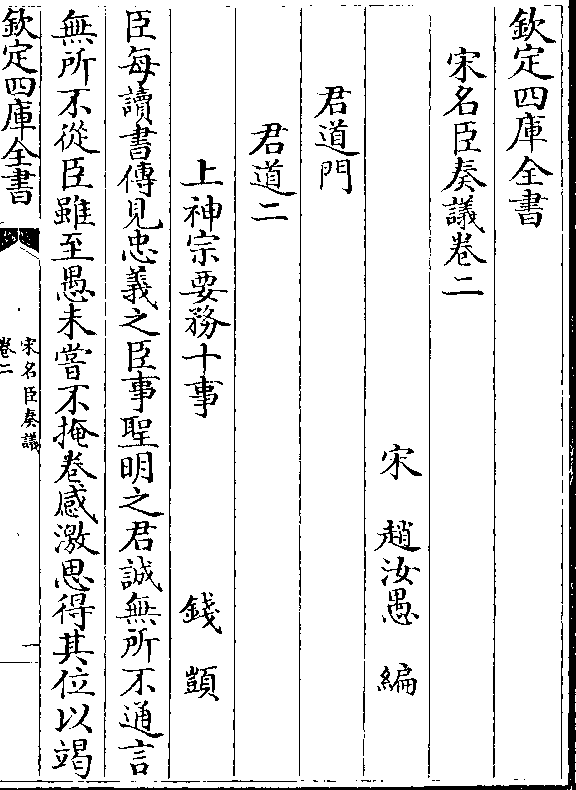 欽定四庫全書
宋名臣奏議卷二
宋 趙汝愚 編
君道門
君道二
上神宗要務十事 錢顗
臣每讀書傳見忠義之臣事聖明之君誠無所不通言
無所不從臣雖至愚未嘗不掩卷感激思得其位以竭
欽定四庫全書
宋名臣奏議
卷二
一